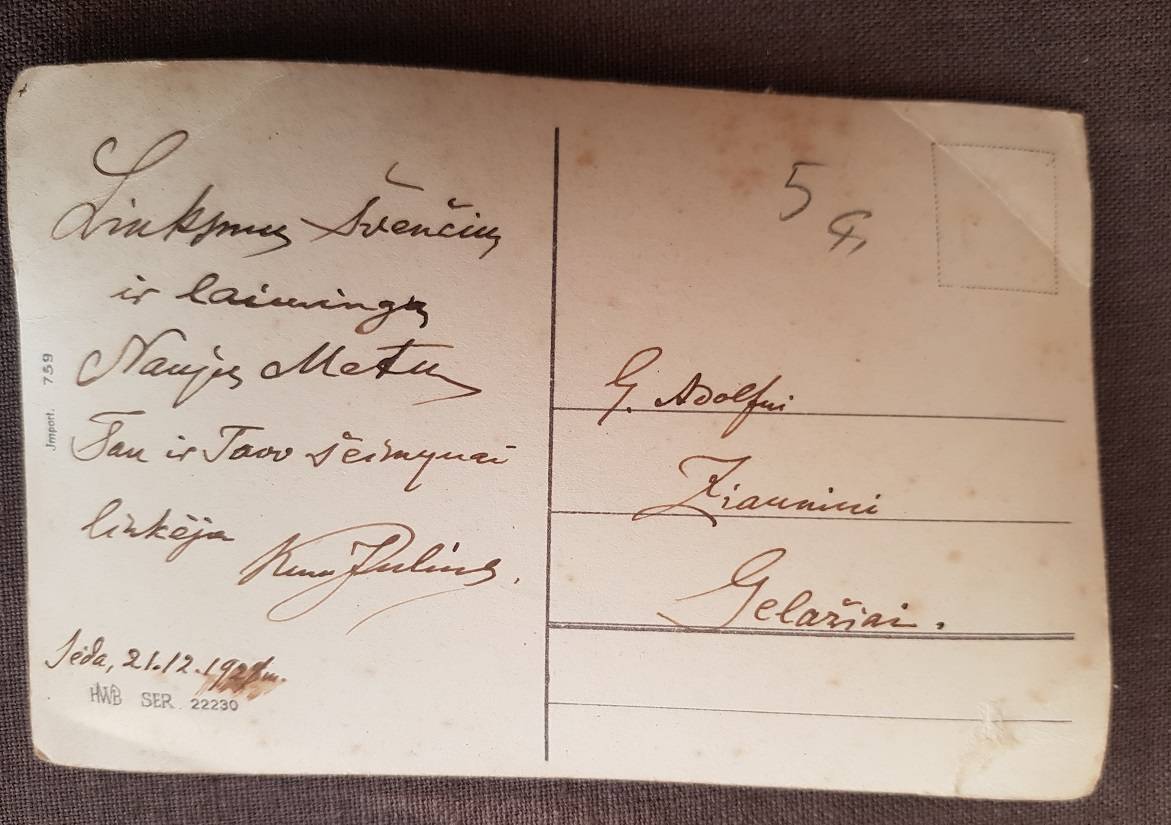 Linksmų švenčių
ir laimingų
Naujų Metų
Tau ir Tavo šeimynai
linkėja
Kun. Julius.
Sėda, 21.12.192 m.
Import. 759
HWB SER. 22230
5
G. Adolfui
Ziaunini
Gelažiai.